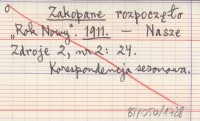 Zakopane rozpoczęło
„Rok Nowy". 1911. — Nasze
Zdroje 2, nr 2: 24.
Korespondencja sezonowa.